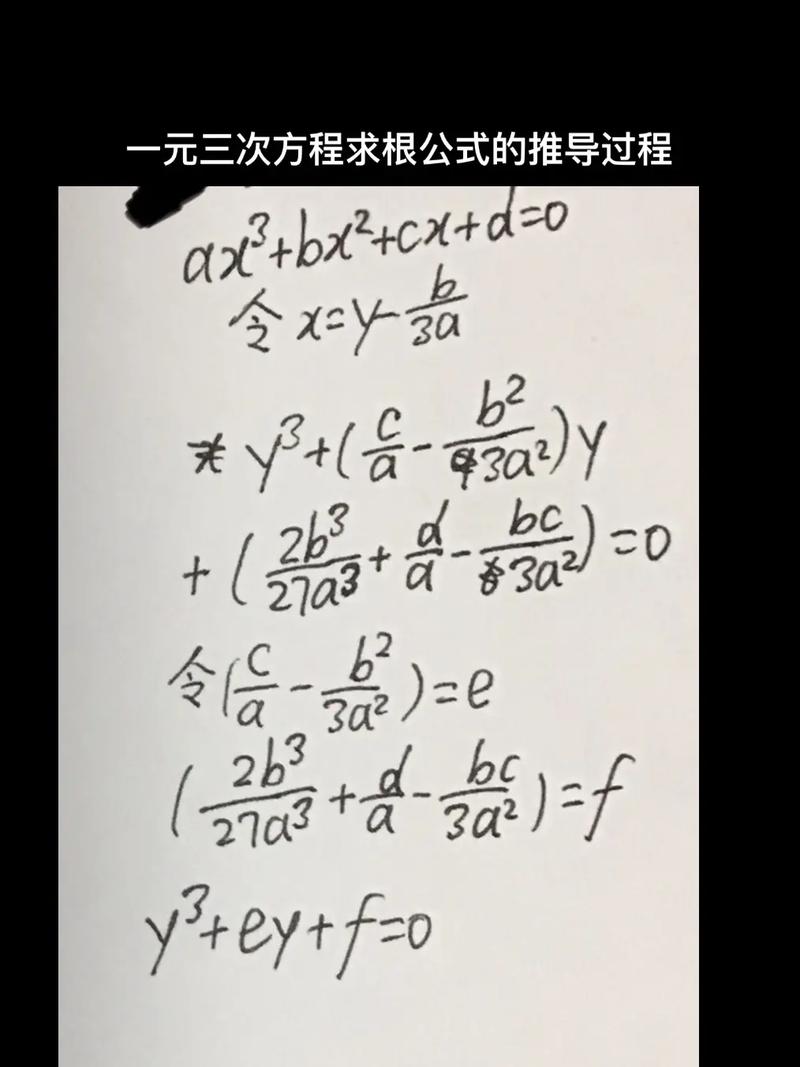 一元三次方程求根公式的推导过程
ax³+bx²+cx+d=0
令 x=y-b/3a
y³+(c/a-b²/3a²)y
+(2b³/27a³+d/a-bc/3a²)=0
令(c/a-b²/3a²)=e
(2b³/27a³+d/a-bc/3a²)=f
y³+ey+f=0